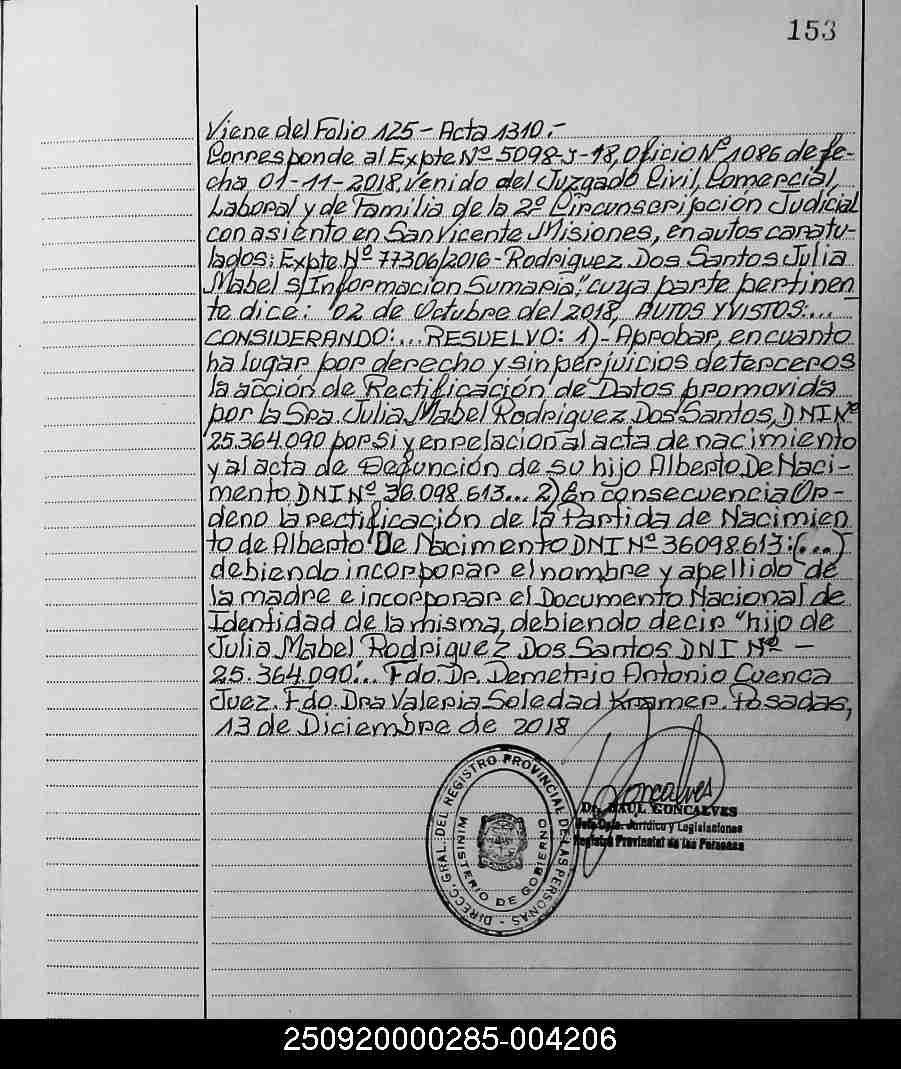 153
Viene del Folio 125 - Acta 1310.-
Corresponde al Expte Nº 5098-J-18, Oficio Nº 1086 de fe-
cha 01-11-2018, venido del Juzgado Civil, Comercial,
Laboral y de Familia de la 2º Circunscripción Judicial
con asiento en San Vicente Misiones, en autos caratu-
lados: Expte Nº 77306/2016 - Rodriguez Dos Santos Julia
Mabel s/Informacion Sumaria", cuya parte pertinen
te dice: "02 de Octubre del 2018, AUTOS Y VISTOS:...
CONSIDERANDO:... RESUELVO: 1)- Aprobar, en cuanto
ha lugar por derecho y sin perjuicios de terceros
la acción de Rectificación de Datos promovida
por la Sra. Julia Mabel Rodriguez Dos Santos, DNI Nº
25.364.090 por si y en relacion al acta de nacimiento
y al acta de Defunción de su hijo Alberto De Naci-
mento DNI Nº 36.098.613... 2) En consecuencia Or-
deno la rectificación de la Partida de Nacimien
to de Alberto De Nacimento DNI Nº 36098.613:(...)
debiendo incorporar el nombre y apellido de
la madre e incorporar el Documento Nacional de
Identidad de la misma, debiendo decir "hijo de
Julia Mabel Rodriguez Dos Santos DNI Nº -
25.364.090"... Fdo. Dr. Demetrio Antonio Cuenca
Juez. Fdo. Dra Valeria Soledad Kramer. Posadas,
13 de Diciembre de 2018
DIRECC. GRAL. DEL REGISTRO PROVINCIAL DE LAS PERSONAS -
MINISTERIO DE GOBIERNO
Goncalves
Dr. RAUL GONCALVES
Jefe Dpto. Jurídico y Legislaciones
Registro Provincial de las Personas
250920000285-004206